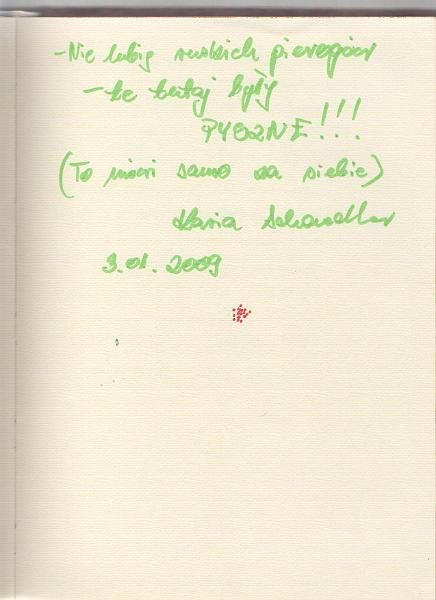 - Nie lubię ruskich pierogów
- te tutaj były
PYSZNE!!!
(To mówi samo za siebie)
Maria
3.01.2009